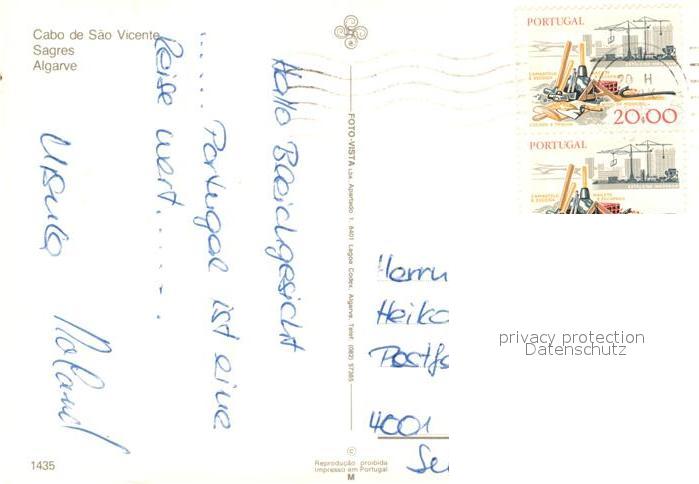 Cabo de São Vicente
Sagres
Algarve
Hallo
...... Portugal ist eine
Reise wert......
Ursula
Roland
FOTO-VISTA Lda. Apartado 1 8401 Lagoa Codex, Algarve, Telef. (082) 57365
PORTUGAL
20 H
20.00
PORTUGAL
Herrn
Heiko
Postf
4001
privacy protection
Datenschutz
1435
©
Reprodução proibida
Impresso em Portugal
M